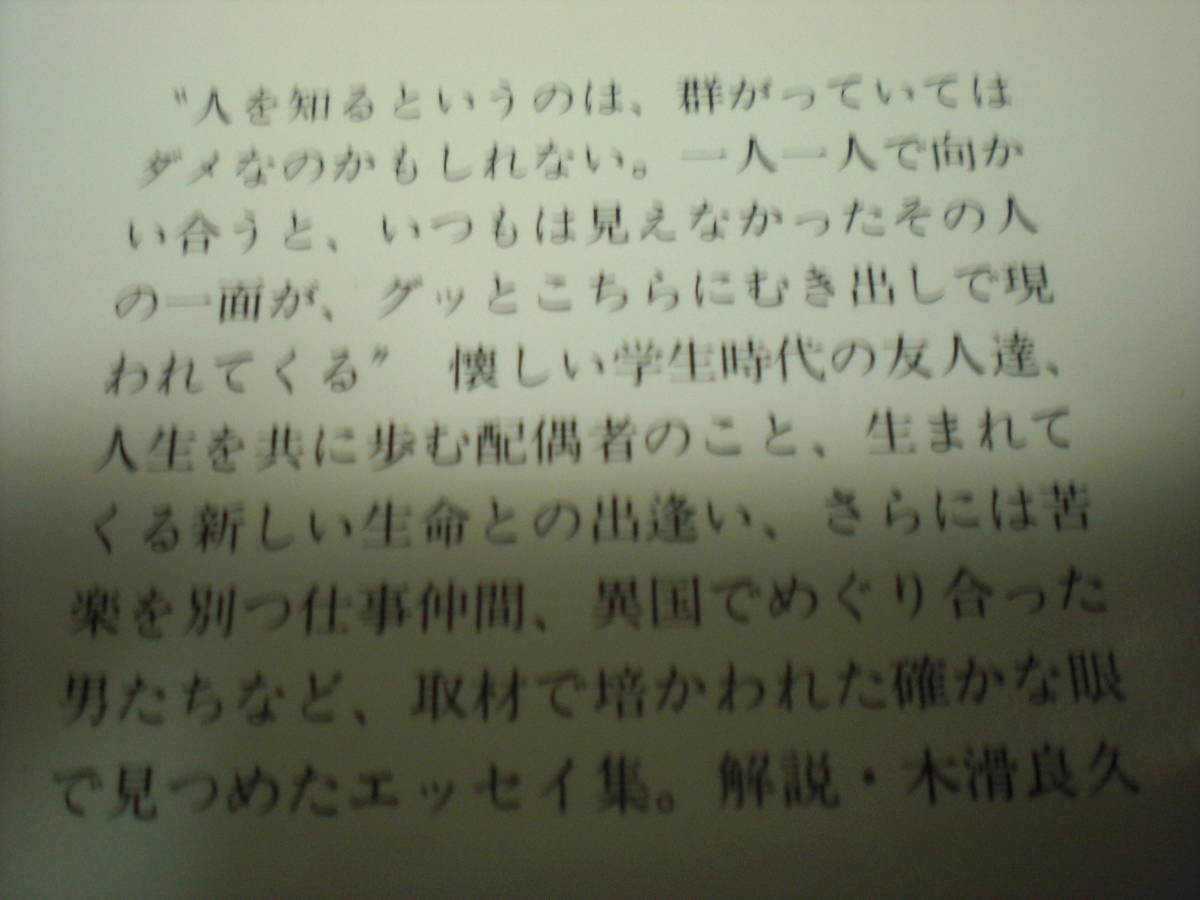 〝人を知るというのは、群がっていては
ダメなのかもしれない。一人一人で向か
い合うと、いつもは見えなかったその人
の一面が、グッとこちらにむき出しで現
われてくる〟 懐しい学生時代の友人達、
人生を共に歩む配偶者のこと、生まれて
くる新しい生命との出逢い、さらには苦
楽を別つ仕事仲間、異国でめぐり合った
男たちなど、取材で培かわれた確かな眼
で見つめたエッセイ集。解説・木滑良久